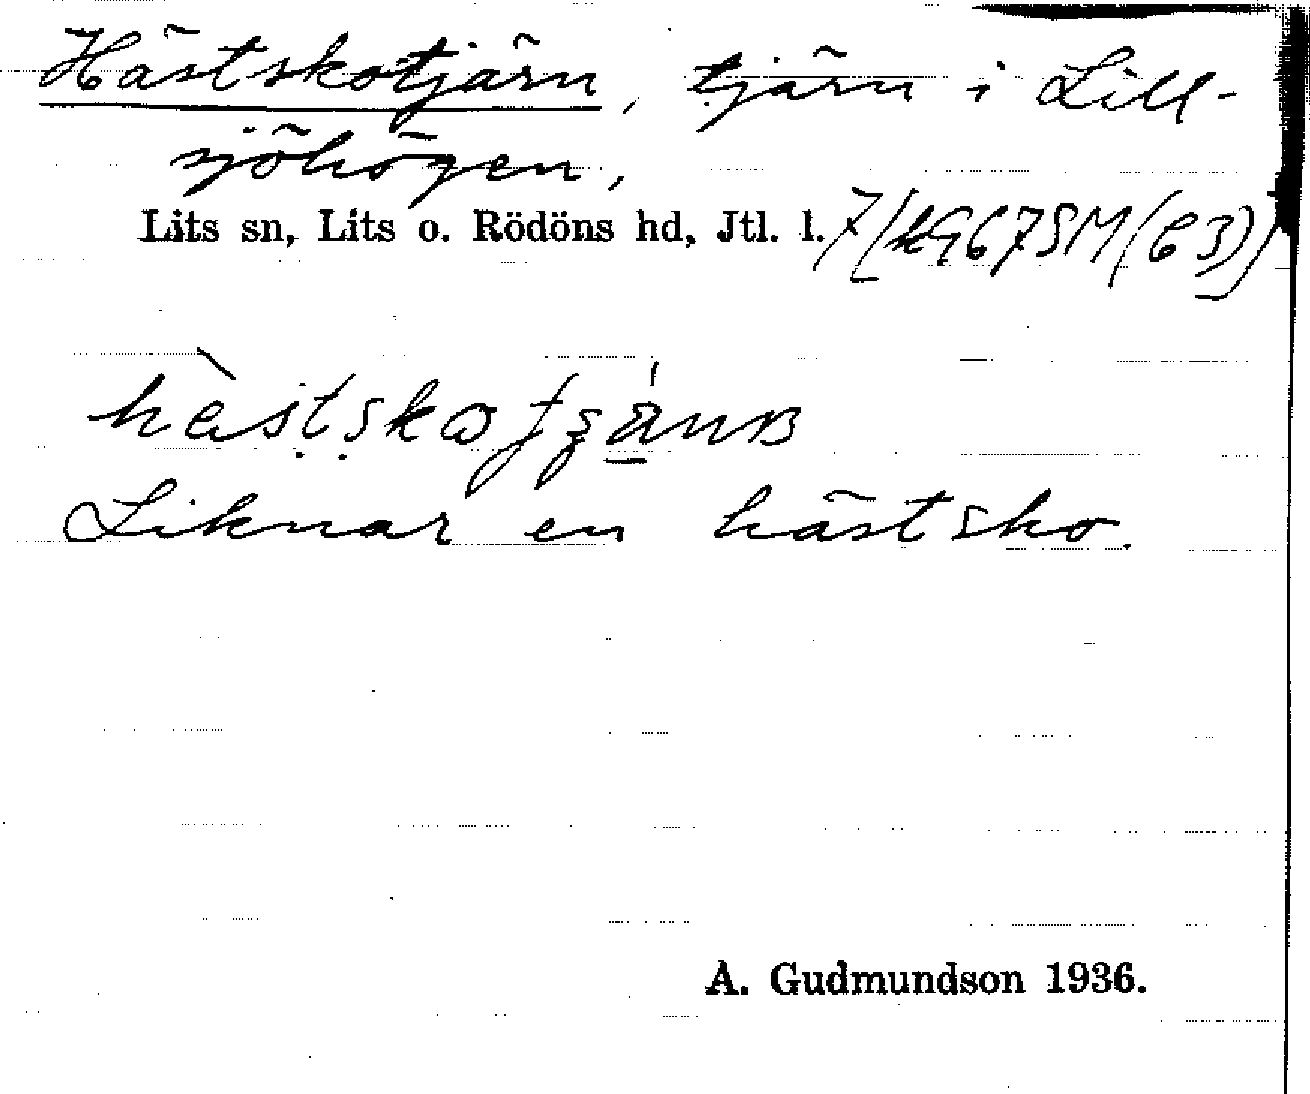 Hästskotjärn, tjärn i Lill-
sjöhögen,
Lits sn, Lits o. Rödöns hd, Jtl. l.
Liknar en hästsko.
A. Gudmundson 1936.